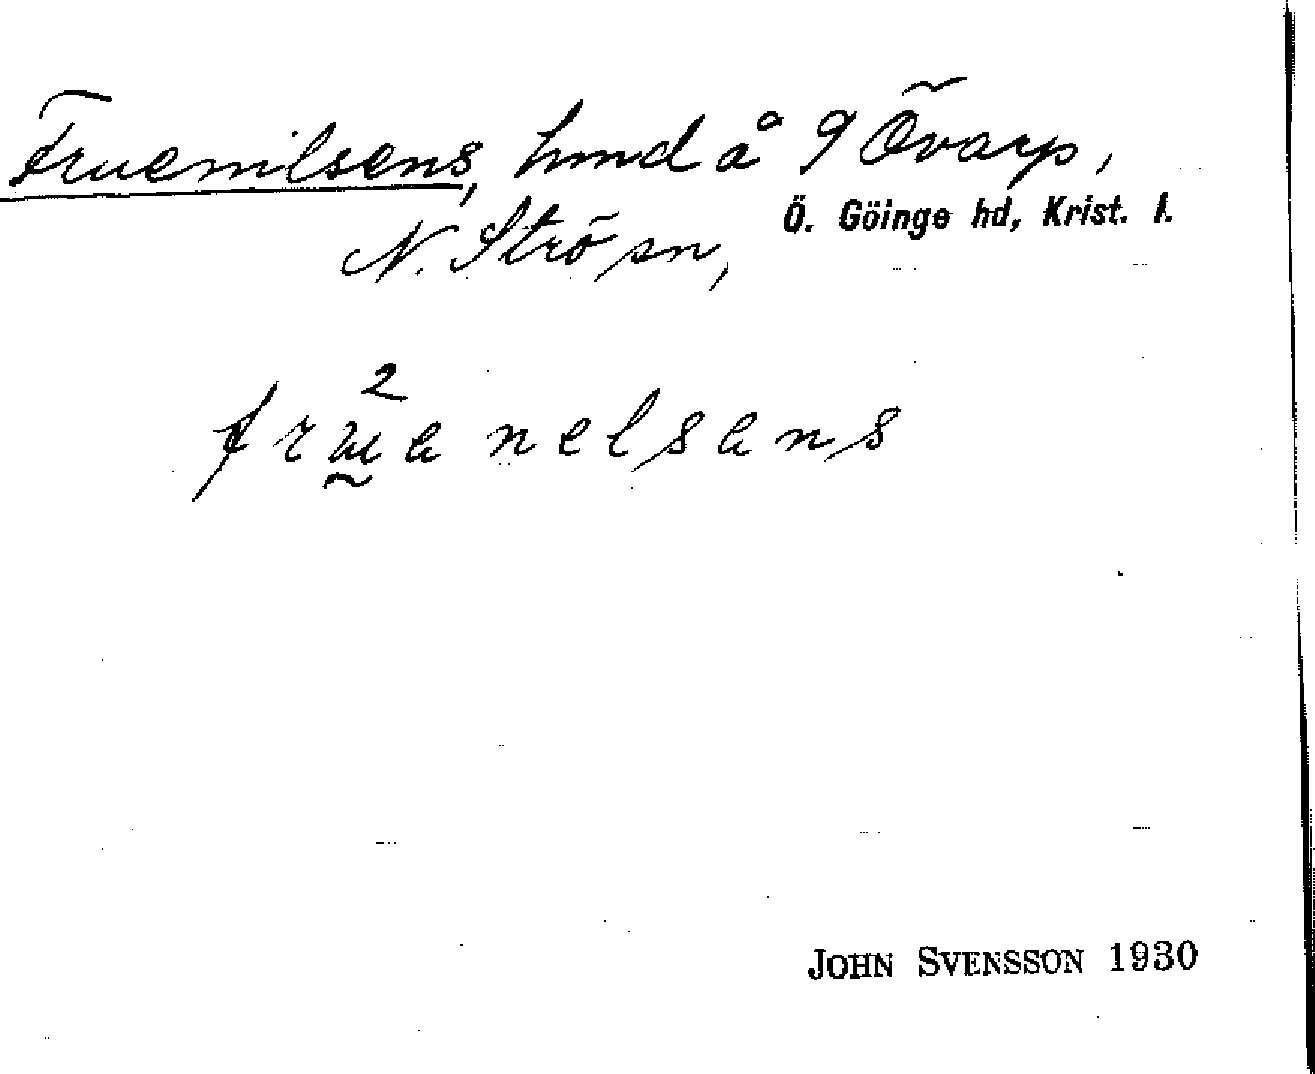 Fruenilsens, hmd å 9 Övarp,
N. Strö sn, Ö. Göinge hd, Krist. l.
nelsans
JOHN SVENSSON 1930